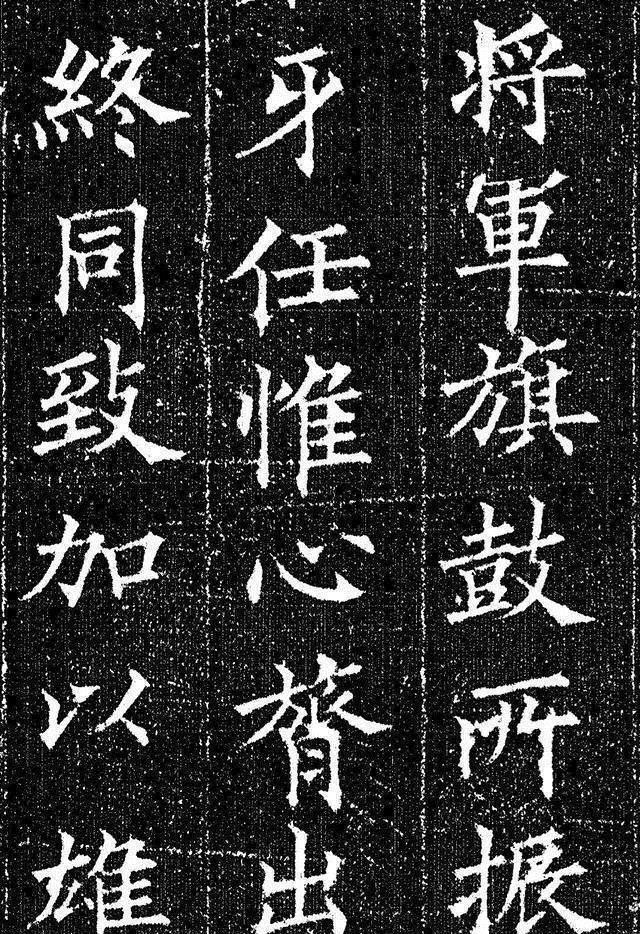 將軍旗鼓所振
牙任惟心膂出
終同致加以雄